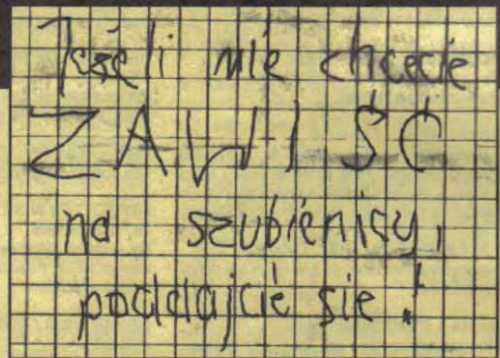 Jeżeli nie chcecie
ZAWISĆ
na szubienicy,
poddajcie sie!